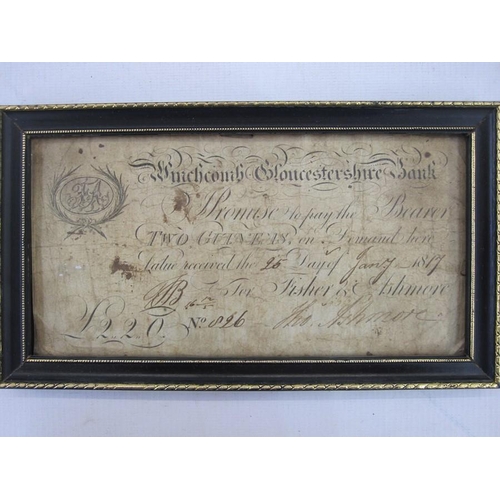 Winchcomb Gloucestershire Bank
I Promise to pay the Bearer
TWO GUINEAS, on Demand here
Value received the 20 Day of Jany 1817
For Fisher & Ashmore
£2.2.0. No 826 Tho. Ashmore